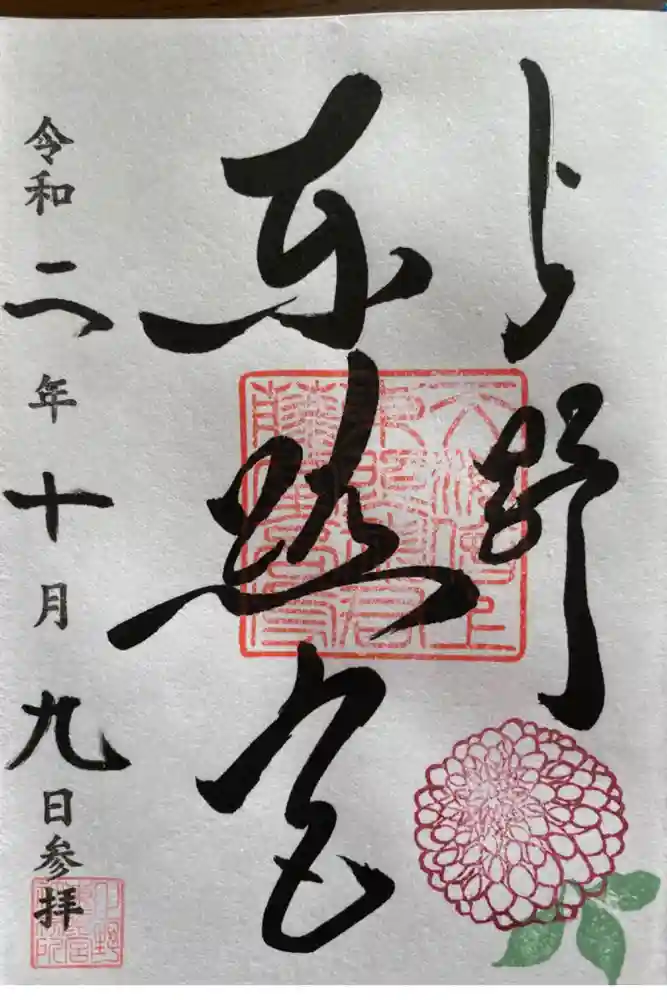 上野
東照宮
令和二年十月九日参拝